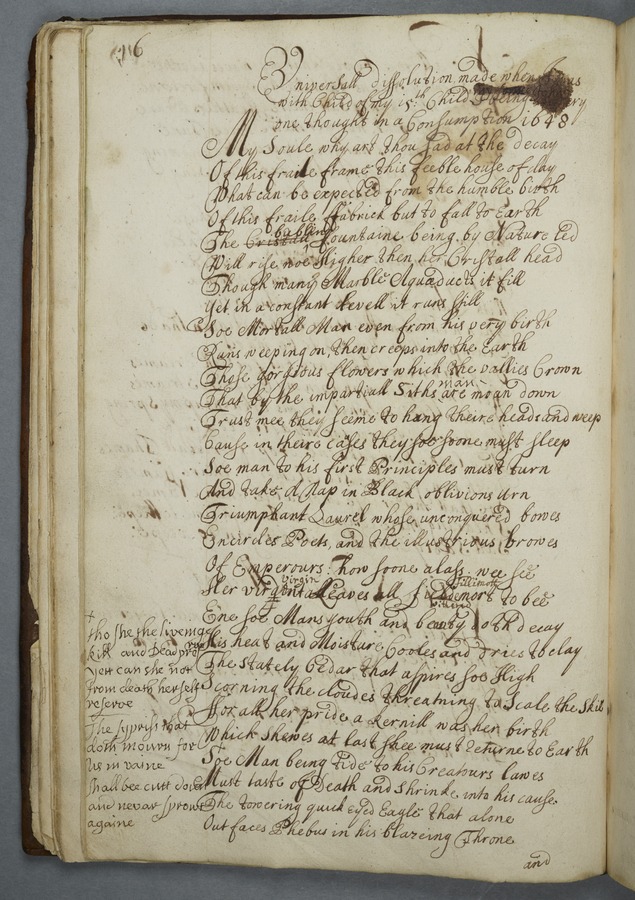 Universall dissolution, made when I was
with Child of my 15th Child I being
one thought in a Consumption 1648
My Soule why art thou sad at the decay
Of this fraile frame this feeble house of clay
What can be expected from the humble birth
Of this fraile ffabrick but to fall to Earth
The Cristall bubling ffountaine being by Nature led
Will rise noe Higher then her Cristall head
Though many Marble Aquaducts it fill
Yet in a constant Levell it runs still
Soe Mortall Man even from his very birth
Runs weeping on, then creeps into the Earth
Those gorgious flowers which the vallies Crown
That by the impartiall Siths man are moan down
Trust mee they seeme to hang theire heads and weep
Cause in theire cases they soe soone must sleep
Soe man to his first Principles must turn
And take a Nap in Black oblivions urn
Triumphant Laurel whose unconquered bowes
Encircles Poets, and the illustrious browes
Of Emperours: how soone alass wee see
Her virgin Leaves all to bee
Ene soe Mans youth and beauty doth decay
His heat and Moisture Cooles and dries to clay
The Stately Cedar that aspires soe High
Scorning the cloudes threatning to Scale the Skie
For all her pride a Kernill was her birth
Which shewes at last shee must Returne to Earth
Soe Man being tide to his Creatours lawes
Must taste of Death and Shrinke into his cause
The towering quick eyed Eagle that alone
Out faces Phebus in his blazeing Throne
and
tho she the liveing
kill and Dead
yett can she not
from death herselfe
reserve
The sypriss that
doth mourn for
us in vaine
shall bee cutt down
and nevar sprout
againe